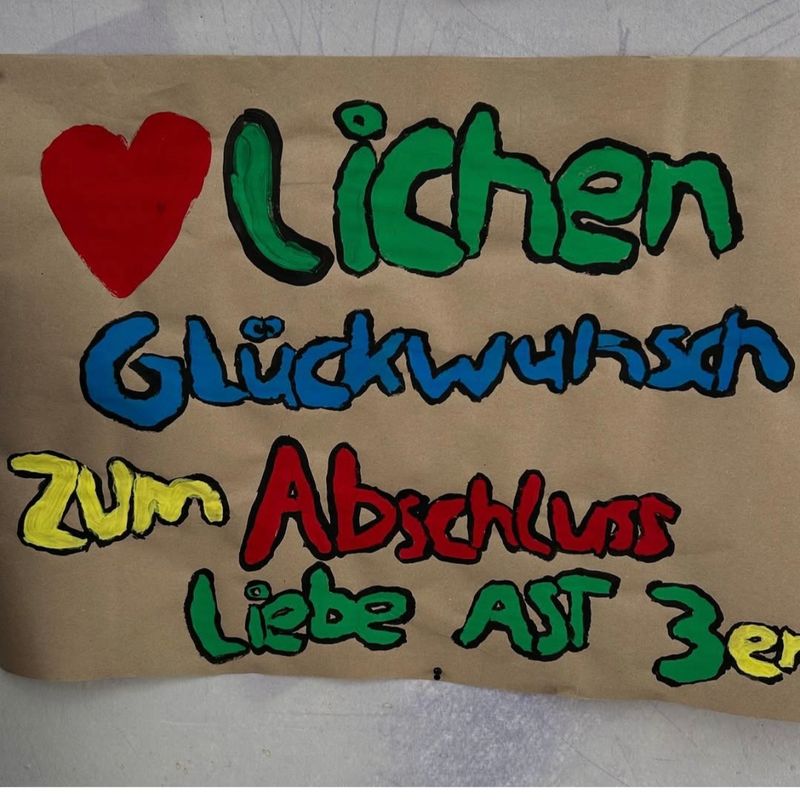 ♥Lichen
Glückwunsch
zum Abschluss
Liebe AST 3er